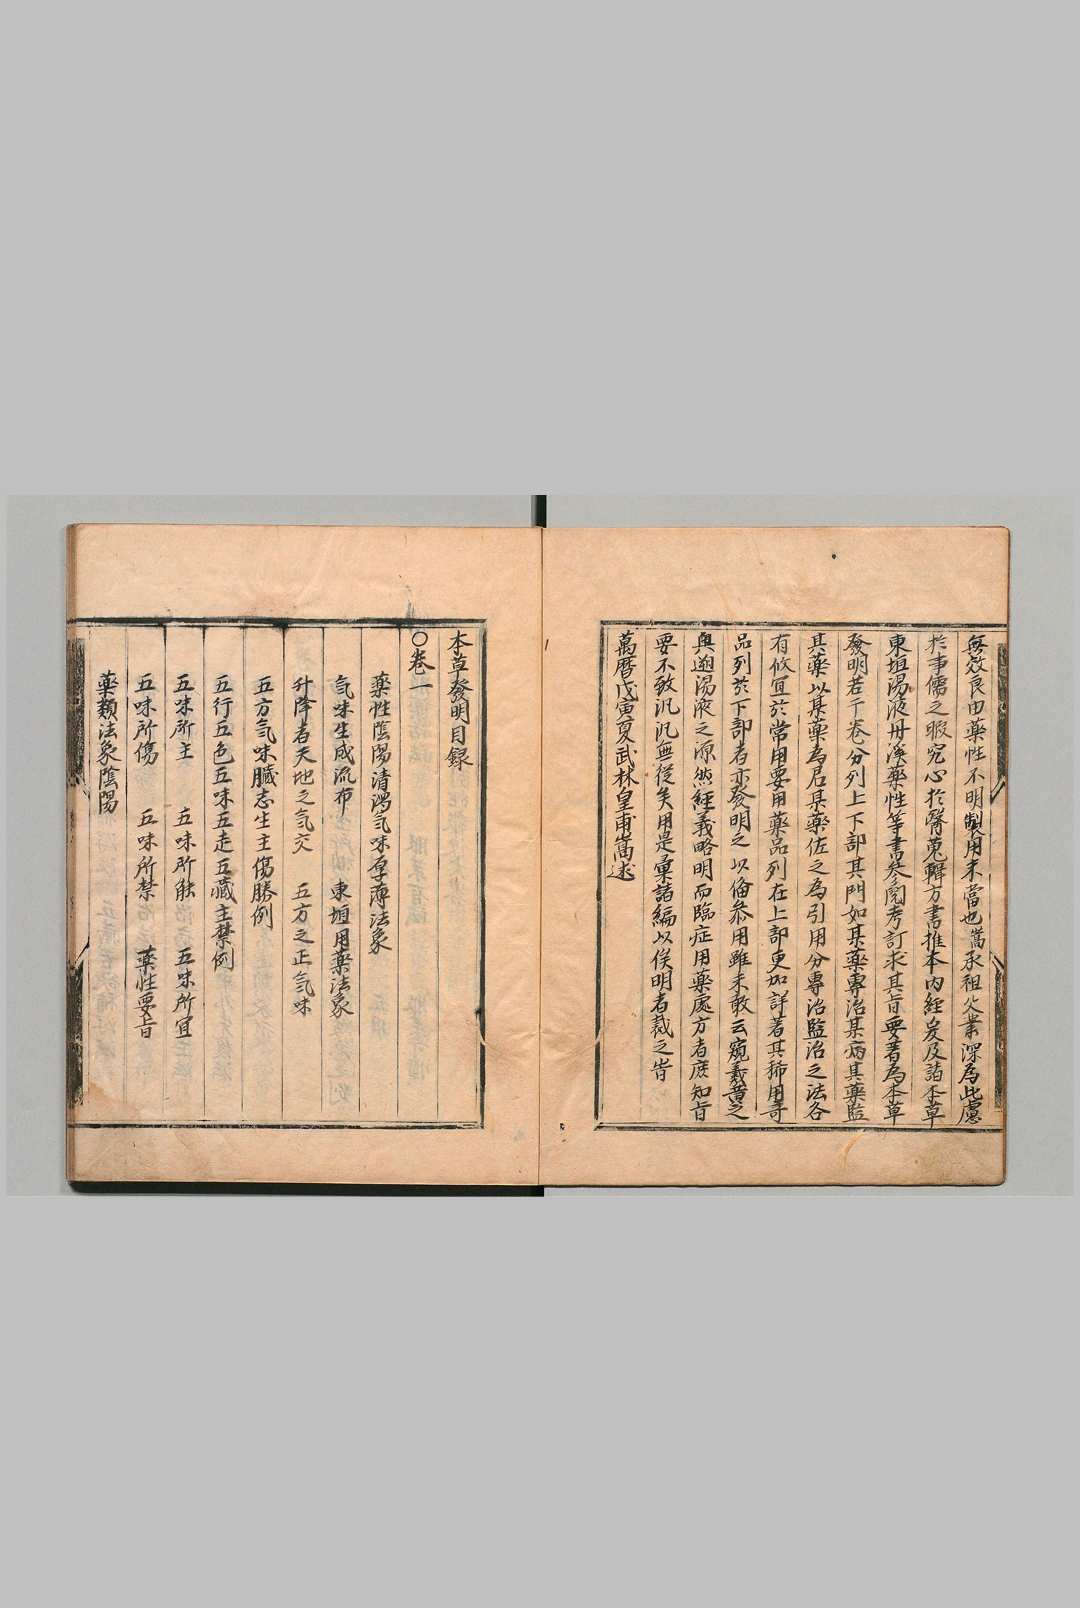 無效良由藥性不明製用未當也嵩承祖父業深為此慮
扵事儒之暇究心扵醫蒐輯方書推本内經爰及諸本草
東垣湯液丹溪藥性等書叅閱考訂求其旨要著為本草
發明若干卷分列上下部其門如某藥專治某病某藥監
其藥以某藥為君某藥佐之為引用分專治監治之法各
有攸宜於常用要用藥品列在上部更加詳著其稀用奇
品列於下部者亦發明之以俻叅用雖未敢云窺羲黄之
奥遡湯液之源然經義略明而臨症用藥處方者庶知旨
要不致汎汎無從矣用是彙諸編以俟明者裁之旹
萬曆戊寅夏武林皇甫嵩述
本草發明目録
○卷一
藥性陰陽清濁氣味厚薄法象
氣味生成流布 東垣用藥法象
升降者天地之氣交 五方之正氣味
五方氣味臟志生主傷勝例
五行五色五味五走五藏主禁例
五味所主 五味所能 五味所宜
五味所傷 五味所禁 藥性要旨
藥類法象陰陽